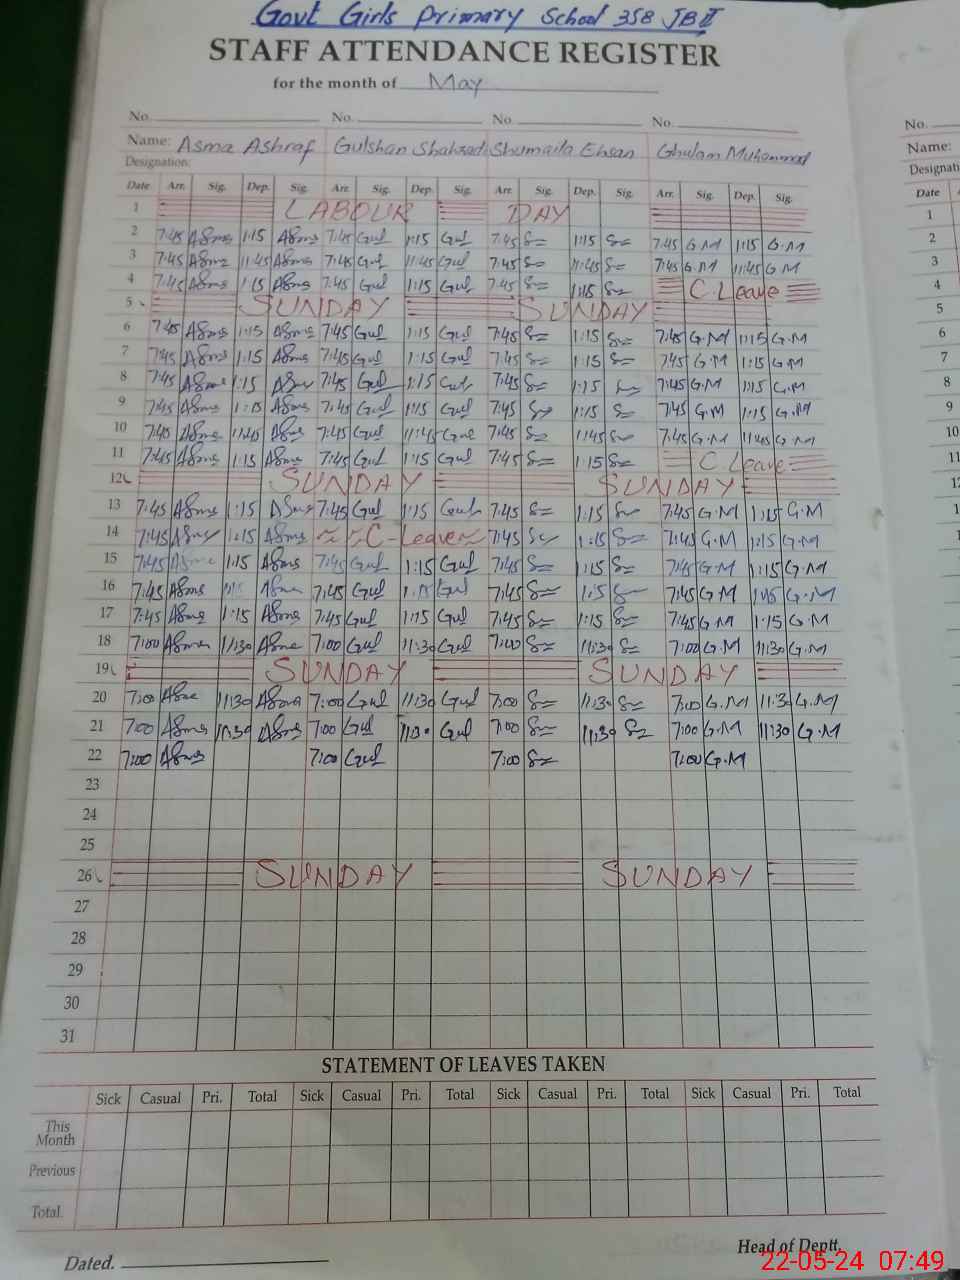 Govt Girls Primary School 358 JB II
STAFF ATTENDANCE REGISTER
for the month of May
No. No. No. No. No.
Name: Asma Ashraf Gulshan Shahzad Shumaila Ehsan Ghulam Muhammad Name:
Designation:
Date Arr. Sig. Dep. Sig. Arr. Sig. Dep. Sig. Arr. Sig. Dep. Sig. Arr. Sig. Dep. Sig. Date
1 LABOUR DAY 1
2 7:45 Asma 1:15 Asma 7:45 Gul 1:15 Gul 7:45 1:15 7:45 G.M 1:15 G.M 2
3 7:45 Asma 11:45 Asma 7:45 Gul 11:45 Gul 7:45 11:45 7:45 G.M 11:45 G.M 3
4 7:45 Asma 1:15 Asma 7:45 Gul 1:15 Gul 7:45 1:15 C.Leave 4
5 SUNDAY SUNDAY 5
6 7:45 Asma 1:15 Asma 7:45 Gul 1:15 Gul 7:45 1:15 7:45 G.M 1:15 G.M 6
7 7:45 Asma 1:15 Asma 7:45 Gul 1:15 Gul 7:45 1:15 7:45 G.M 1:15 G.M 7
8 7:45 Asma 1:15 Asma 7:45 Gul 1:15 Gul 7:45 1:15 7:45 G.M 1:15 G.M 8
9 7:45 Asma 1:15 Asma 7:45 Gul 1:15 Gul 7:45 1:15 7:45 G.M 1:15 G.M 9
10 7:45 Asma 11:45 Asma 7:45 Gul 11:45 Gul 7:45 11:45 7:45 G.M 11:45 G.M 10
11 7:45 Asma 1:15 Asma 7:45 Gul 1:15 Gul 7:45 1:15 C.Leave 11
12 SUNDAY SUNDAY 12
13 7:45 Asma 1:15 Asma 7:45 Gul 1:15 Gul 7:45 1:15 7:45 G.M 1:15 G.M
14 7:45 Asma 1:15 Asma C-Leave 7:45 1:15 7:45 G.M 1:15 G.M
15 7:45 Asma 1:15 Asma 7:45 Gul 1:15 Gul 7:45 1:15 7:45 G.M 1:15 G.M
16 7:45 Asma 1:15 Asma 7:45 Gul 1:15 Gul 7:45 1:5 7:45 G.M 1:15 G.M
17 7:45 Asma 1:15 Asma 7:45 Gul 1:15 Gul 7:45 1:15 7:45 G.M 1:15 G.M
18 7:00 Asma 11:30 Asma 7:00 Gul 11:30 Gul 7:00 11:30 7:00 G.M 11:30 G.M
19 SUNDAY SUNDAY
20 7:00 Asma 11:30 Asma 7:00 Gul 11:30 Gul 7:00 11:30 7:00 G.M 11:30 G.M
21 7:00 Asma 11:30 Asma 7:00 Gul 11:30 Gul 7:00 11:30 7:00 G.M 11:30 G.M
22 7:00 Asma 7:00 Gul 7:00 7:00 G.M
23
24
25
26 SUNDAY SUNDAY
27
28
29
30
31
STATEMENT OF LEAVES TAKEN
Sick Casual Pri. Total Sick Casual Pri. Total Sick Casual Pri. Total Sick Casual Pri. Total
This
Month
Previous
Total.
Dated. Head of Deptt.
22-05-24 07:49